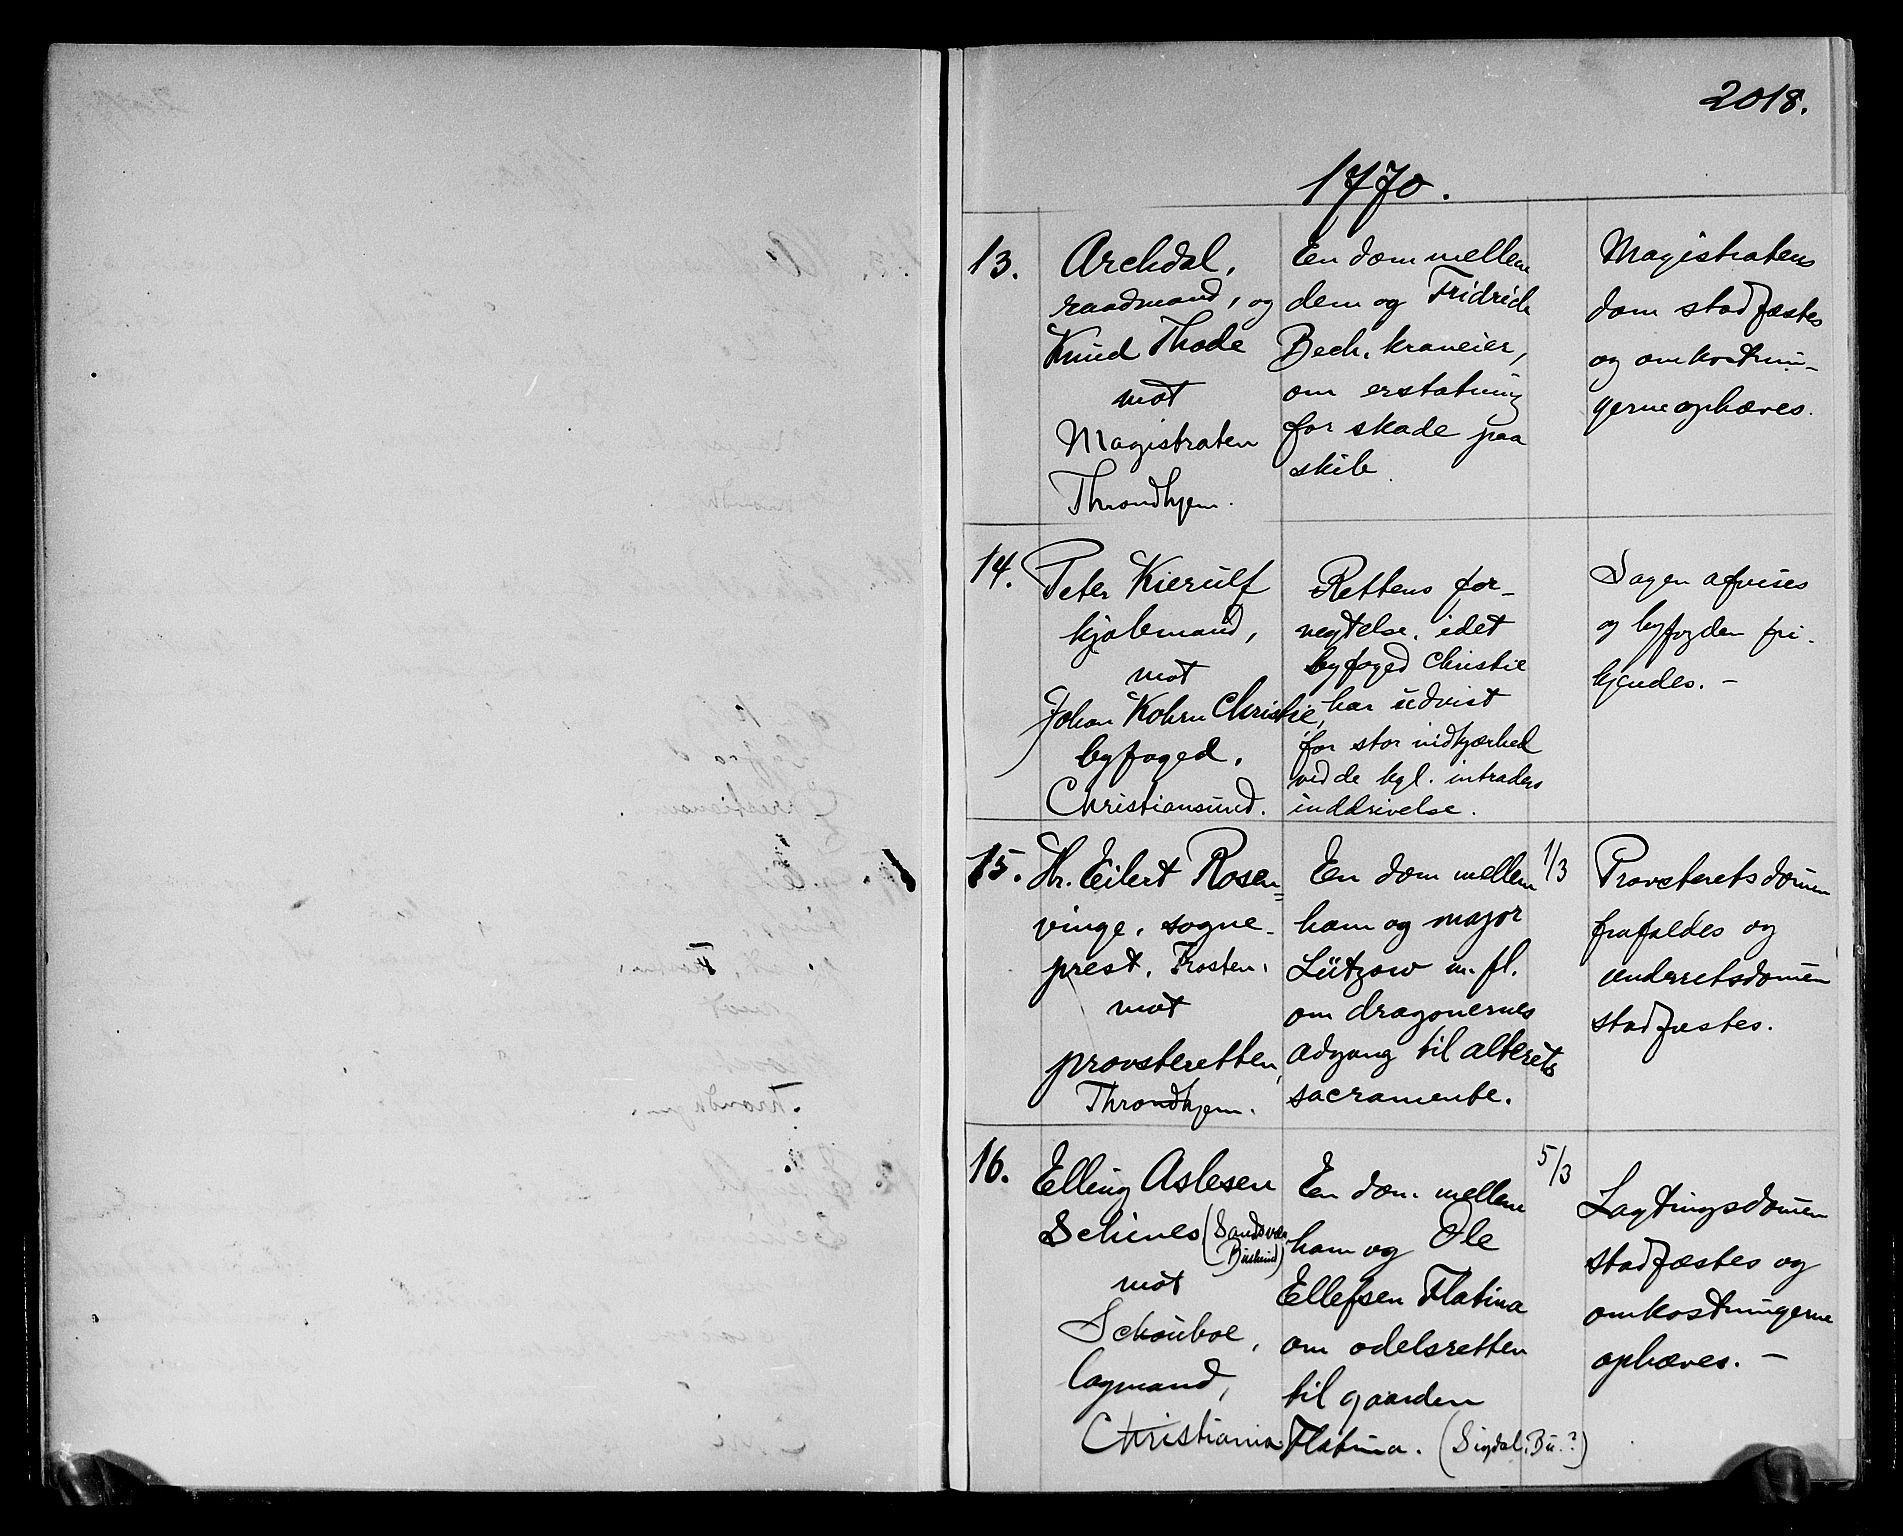 2018.
1770.
13.
Archdal,
raadmand, og
Knud Thode
mot
Magistraten
Throndhjem.
En dom mellem
dem og Fridrich
Bech, kraneier,
om erstatning
for skade paa
skib.
Magistratens
dom stadfæstes
og omkostnin-
gerne ophæves.
14.
Peter Kierulf
kjøbmand,
mot
Johan Kohrn Christie,
byfoged,
Christiansund.
Rettens for-
negtelse, idet
byfoged Christie
har udvist
for stor nidkjærhed
ved de kgl. intraders
inddrivelse.
Sagen afvises
og byfogden fri-
kjendes. –
15.
Hr. Eilert Rosen=
vinge, sogne-
prest, Frosten,
mot
provsteretten,
Throndhjem.
En dom mellem
ham og major
Lützow m. fl.
om dragonernes
adgang til alterets
sacramente.
1/3
Provsteretsdommen
frafaldes og
underretsdommen
stadfæstes.
16.
Elling Aslesen
Schines (Sandsvær
Buskerud)
mot
Schouboe,
lagmand,
Christiania.
En dom mellem
ham og Ole
Ellefsen Flatina
om odelsretten
til gaarden
Flatina. (Sigdal, Bu.?)
5/3
Lagtingsdommen
stadfæstes og
omkostningerne
ophæves. –